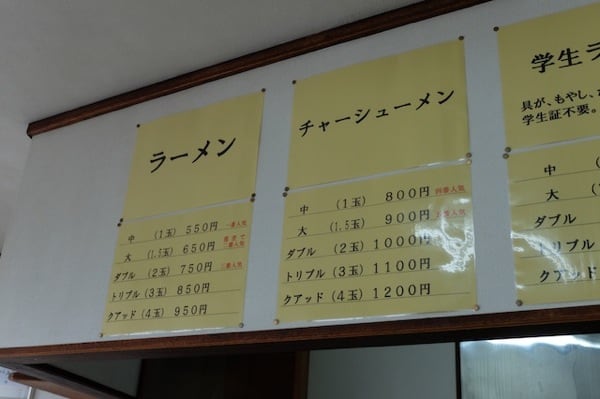 ラーメン
中 (1玉) 550円 一番人気
大 (1.5玉) 650円
ダブル (2玉) 750円 三番人気
トリプル (3玉) 850円
クアッド (4玉) 950円
チャーシューメン
中 (1玉) 800円 四番人気
大 (1.5玉) 900円
ダブル (2玉) 1000円
トリプル (3玉) 1100円
クアッド (4玉) 1200円
学生ラ
具が、もやし、
学生証不要。
中
大
ダブル
トリプル
クアッド